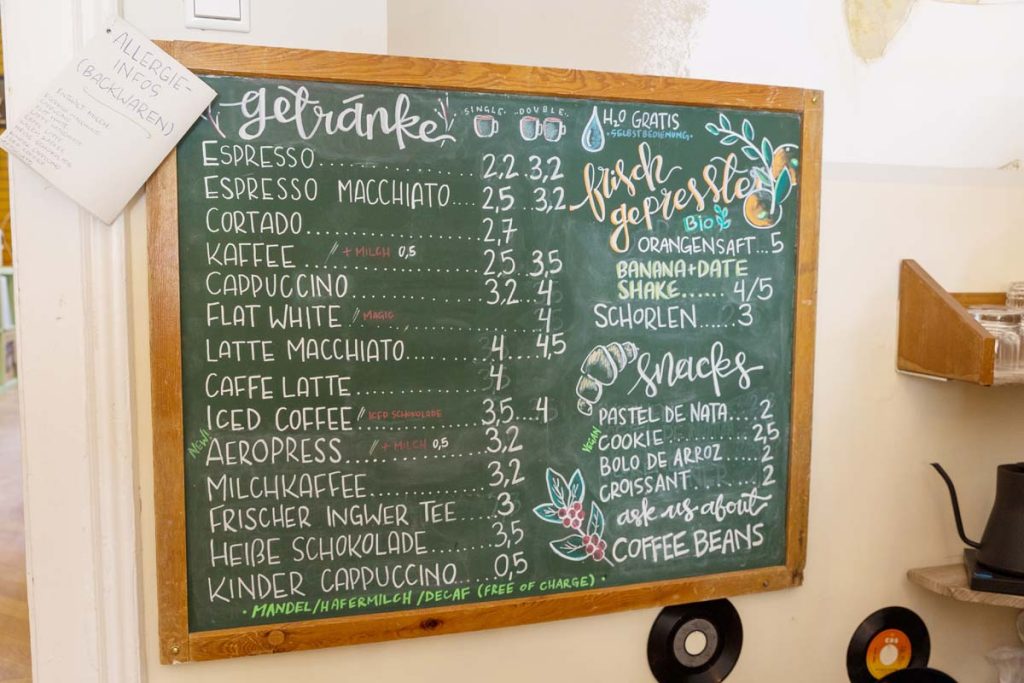 ALLERGIE-
INFOS
(BACKWAREN)
getränke
SINGLE DOUBLE
ESPRESSO.......... 2,2 .. 3,2
ESPRESSO MACCHIATO.... 2,5 3,2
CORTADO.......... 2,7
KAFFEE // + MILCH 0,5 .......... 2,5 .. 3,5
CAPPUCCINO.......... 3,2 .. 4
FLAT WHITE // MAGIC .......... 4
LATTE MACCHIATO.......... 4 .... 4,5
CAFFE LATTE.......... 4
ICED COFFEE // ICED SCHOKOLADE .......... 3,5 ... 4
NEW!
AEROPRESS // + MILCH 0,5 .......... 3,2
MILCHKAFFEE.......... 3,2
FRISCHER INGWER TEE.... 3
HEIßE SCHOKOLADE.......... 3,5
KINDER CAPPUCCINO.... 0,5
• MANDEL/HAFERMILCH/DECAF (FREE OF CHARGE) •
H₂O GRATIS
• SELBSTBEDIENUNG •
frisch
gepresste
Bio
ORANGENSAFT...5
BANANA+DATE
SHAKE...... 4/5
SCHORLEN......3
snacks
PASTEL DE NATA....2
VEGAN
COOKIE..........2,5
BOLO DE ARROZ....2
CROISSANT..........2
ask us about
COFFEE BEANS
CBS